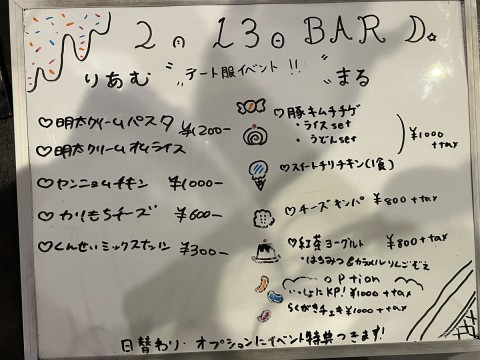 2月13日 BAR D.
りあむ
"デート服イベント!!"
まる
♡明太クリームパスタ ¥1200-
♡明太クリームオムライス
♡ヤンニョムチキン ¥1000-
♡カリもちチーズ ¥600-
♡くんせいミックスナッツ ¥300-
♡豚キムチチゲ
・ライスset
・うどんset
¥1000+tax
♡スイートチリチキン(1食)
♡チーズキンパ ¥800+tax
♡紅茶ヨーグルト ¥800+tax
・はちみつ&カラメルりんごぞえ
option
いっしょにKP! ¥1000+tax
らくがきチェキ ¥1000+tax
日替わり・オプションにイベント特典つきます!